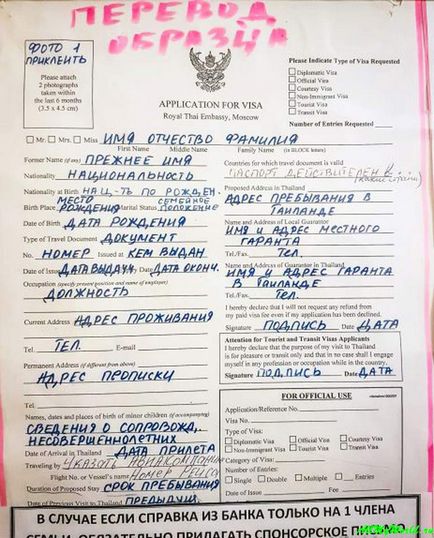 ПЕРЕВОД
ОБРАЗЦА
ФОТО 1
ПРИКЛЕИТЬ
Please attach
2 photographs
taken within
the last 6 months
(3.5 x 4.5 cm)
APPLICATION FOR VISA
Royal Thai Embassy, Moscow
Please Indicate Type of Visa Requested
Diplomatic Visa
Official Visa
Courtesy Visa
Non-Immigrant Visa
Tourist Visa
Transit Visa
Number of Entries Requested
Mr. Mrs. Miss ИМЯ ОТЧЕСТВО ФАМИЛИЯ
First Name Middle Name Family Name (in BLOCK letters)
Former Name (if any) ПРЕЖНЕЕ ИМЯ
Nationality НАЦИОНАЛЬНОСТЬ
Nationality at Birth НАЦ-ТЬ ПО РОЖДЕН.
МЕСТО СЕМЕЙНОЕ
Birth Place РОЖДЕНИЯ Marital Status ПОЛОЖЕНИЕ
Date of Birth ДАТА РОЖДЕНИЯ
Type of Travel Document ДОКУМЕНТ
No. НОМЕР Issued at КЕМ ВЫДАН
Date of Issue ДАТА ВЫДАЧИ Date ДАТА ОКОНЧ.
Occupation (specify present position and name of employer)
ДОЛЖНОСТЬ
Current Address АДРЕС ПРОЖИВАНИЯ
Tel. ТЕЛ. E-mail
Permanent Address (if different from above)
АДРЕС ПРОПИСКИ
Tel.
Names, dates and places of birth of minor children (if accompanying)
СВЕДЕНИЯ О СОПРОВОЖД.
НЕСОВЕРШЕННОЛЕТНИХ
Date of Arrival in Thailand ДАТА ПРИЛЕТА
Traveling by УКАЗАТЬ АВИАКОМПАНИЮ
Flight No. or Vessel's name НОМЕР РЕЙСА
Duration of Proposed Stay СРОК ПРЕБЫВАНИЯ
Date of Previous Visit to Thailand ПРЕДЫДУЩ.
Countries for which travel document is valid
ПАСПОРТ ДЕЙСТВИТЕЛЕН В
Proposed Address in Thailand
АДРЕС ПРЕБЫВАНИЯ В
ТАИЛАНДЕ
Name and Address of Local Guarantor
ИМЯ И АДРЕС МЕСТНОГО
ГАРАНТА
Tel./Fax ТЕЛ.
Name and Address of Guarantor in Thailand
ИМЯ И АДРЕС ГАРАНТА
В ТАИЛАНДЕ
Tel./Fax ТЕЛ.
I hereby declare that I will not request any refund from my
paid visa fee even if my application has been declined.
Signature ПОДПИСЬ Date ДАТА
Attention for Tourist and Transit Visas Applicants
I hereby declare that the purpose of my visit to Thailand
is for pleasure or transit only and that in no case shall I engage
myself in any profession or occupation while in the country.
Signature ПОДПИСЬ Date ДАТА
FOR OFFICIAL USE
Application/Reference No.
Visa No.
Type of Visa:
Diplomatic Visa Official Visa Courtesy Visa
Non-Immigrant Visa Tourist Visa Transit Visa
Category of Visa:
Number of Entries:
Single Double Multiple Entries
Date of Issue Fee
В СЛУЧАЕ ЕСЛИ СПРАВКА ИЗ БАНКА ТОЛЬКО НА 1 ЧЛЕНА
СЕМЬИ, ОБЯЗАТЕЛЬНО ПРИЛАГАТЬ СПОНСОРСКОЕ ПИСЬМО